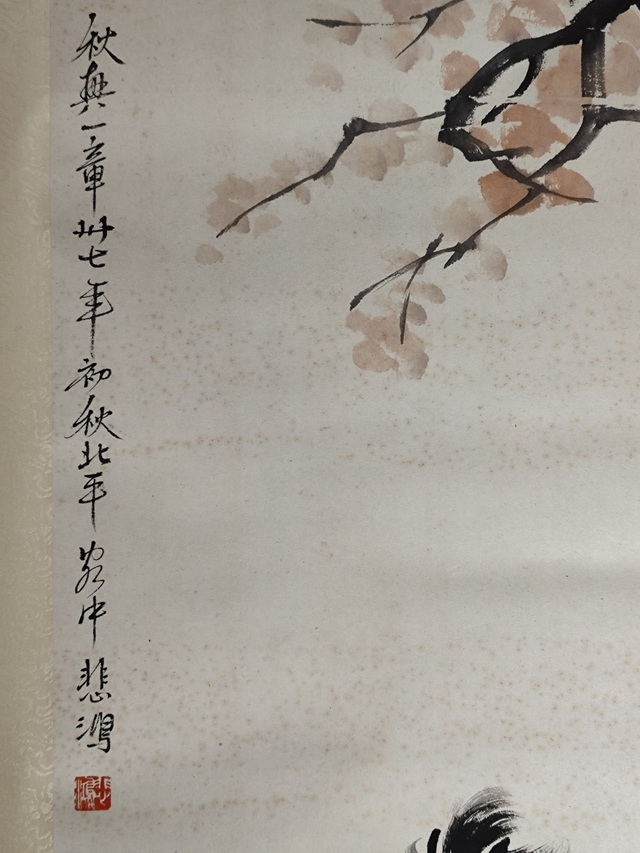 秋興一章卅七年初秋北平客中悲鴻
悲鴻